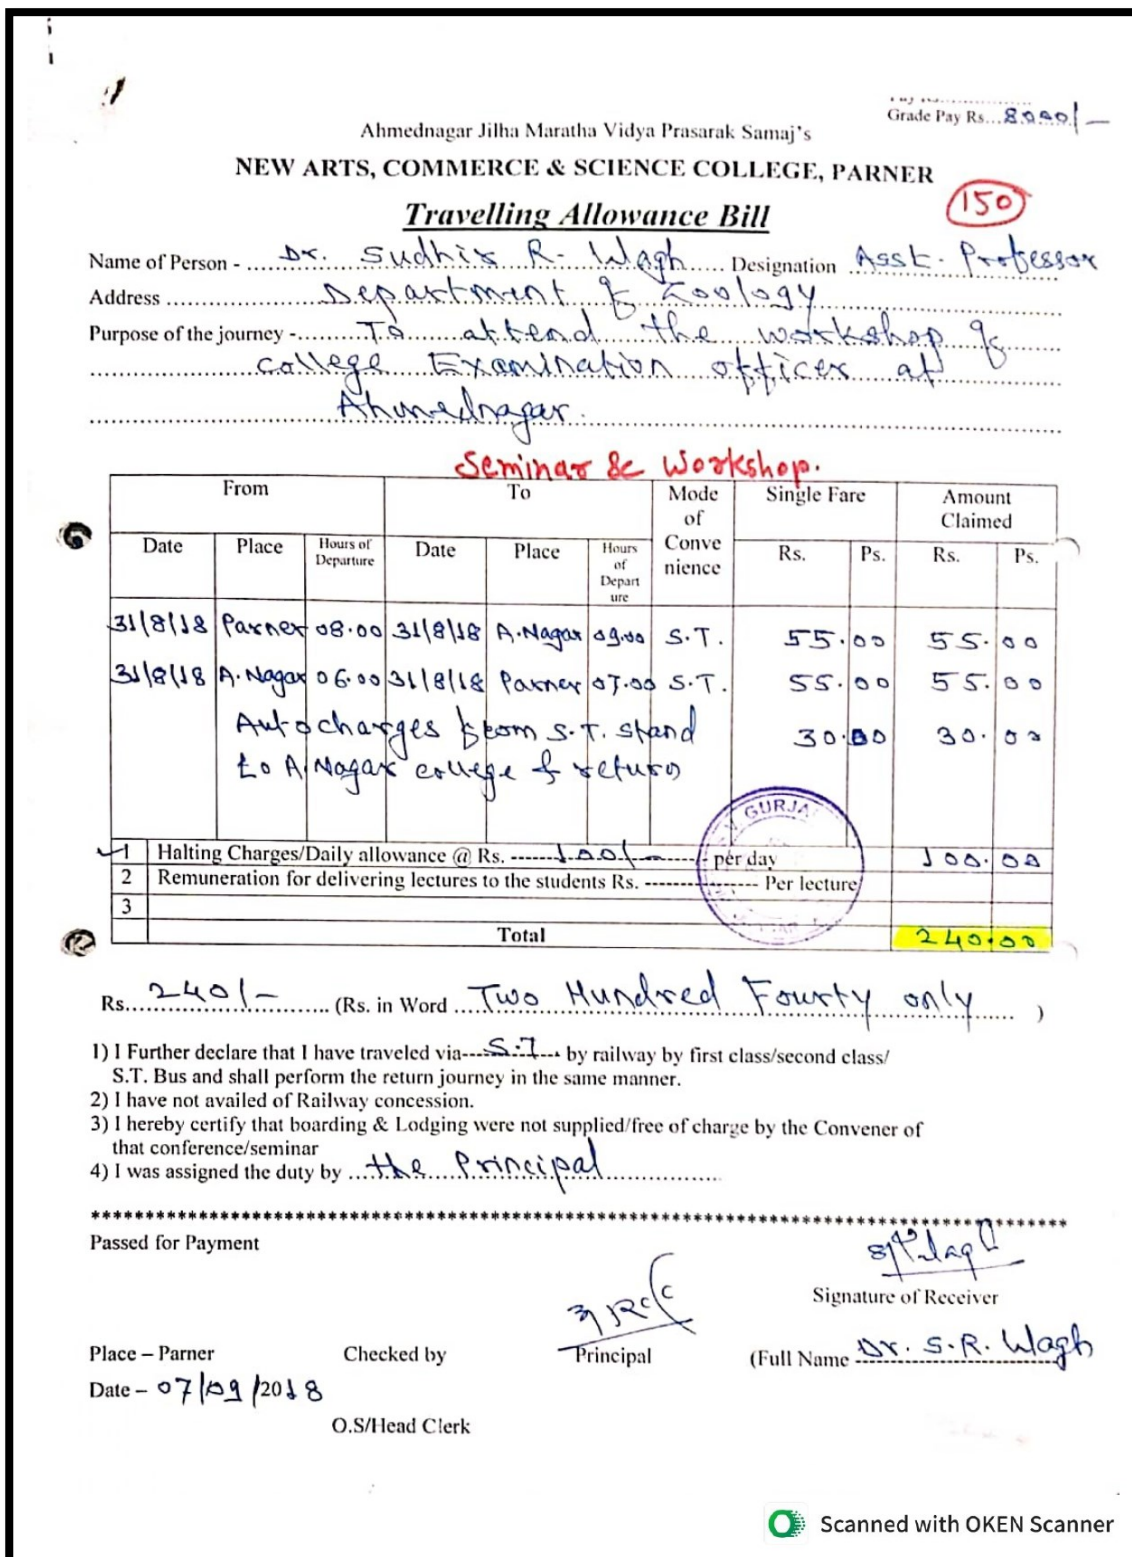 Grade Pay Rs...8000/-
Ahmednagar Jilha Maratha Vidya Prasarak Samaj's
NEW ARTS, COMMERCE & SCIENCE COLLEGE, PARNER
150
Travelling Allowance Bill
Name of Person - Dr. Sudhir R. Wagh Designation Asst. Professor
Address Department of Zoology
Purpose of the journey - To attend the workshop of
college Examination officer at
Ahmednagar.
Seminar & Workshop.
From To Mode of Conve nience Single Fare Amount Claimed
Date Place Hours of Departure Date Place Hours of Depart ure Rs. Ps. Rs. Ps.
31/8/18 Parner 08.00 31/8/18 A.Nagar 09.00 S.T. 55.00 55.00
31/8/18 A.Nagar 06.00 31/8/18 Parner 07.00 S.T. 55.00 55.00
Auto charges from S.T. stand 30.00 30.00
to A.Nagar college & return
GURJA
1 Halting Charges/Daily allowance @ Rs. ------100/-------/- per day 100.00
2 Remuneration for delivering lectures to the students Rs. -------------- Per lecture
3
Total 240.00
Rs. 240/- (Rs. in Word Two Hundred Fourty only )
1) I Further declare that I have traveled via---S.T--- by railway by first class/second class/
S.T. Bus and shall perform the return journey in the same manner.
2) I have not availed of Railway concession.
3) I hereby certify that boarding & Lodging were not supplied/free of charge by the Convener of
that conference/seminar
4) I was assigned the duty by the Principal
Passed for Payment
Signature of Receiver
Place – Parner Checked by Principal (Full Name Dr. S.R. Wagh
Date – 07/09/2018
O.S/Head Clerk
Scanned with OKEN Scanner